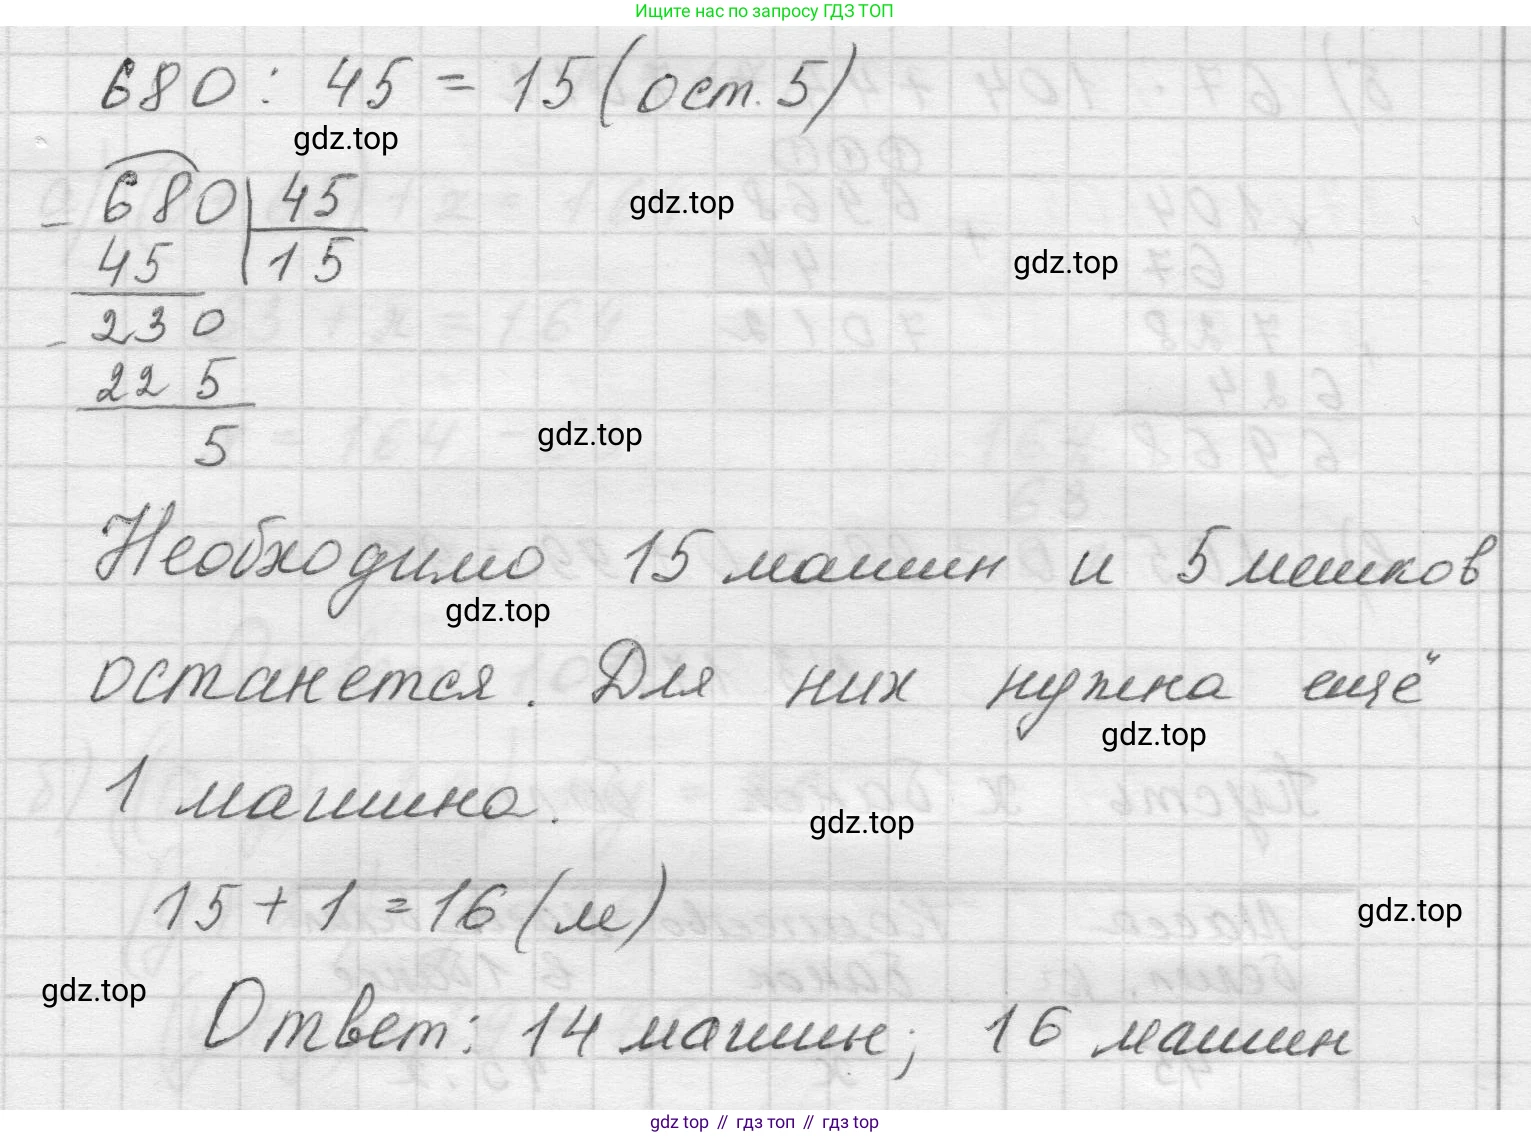 Ищите нас по запросу ГДЗ ТОП
680 : 45 = 15 (ост. 5)
gdz.top
680 45
gdz.top
- 45 15
gdz.top
230
- 225
5
gdz.top
Необходимо 15 машин и 5 мешков
gdz.top
останется. Для них нужна ещё
gdz.top
1 машина.
gdz.top
15 + 1 = 16 (м)
gdz.top
gdz.top
Ответ: 14 машин; 16 машин
gdz top // гдз топ // gdz top